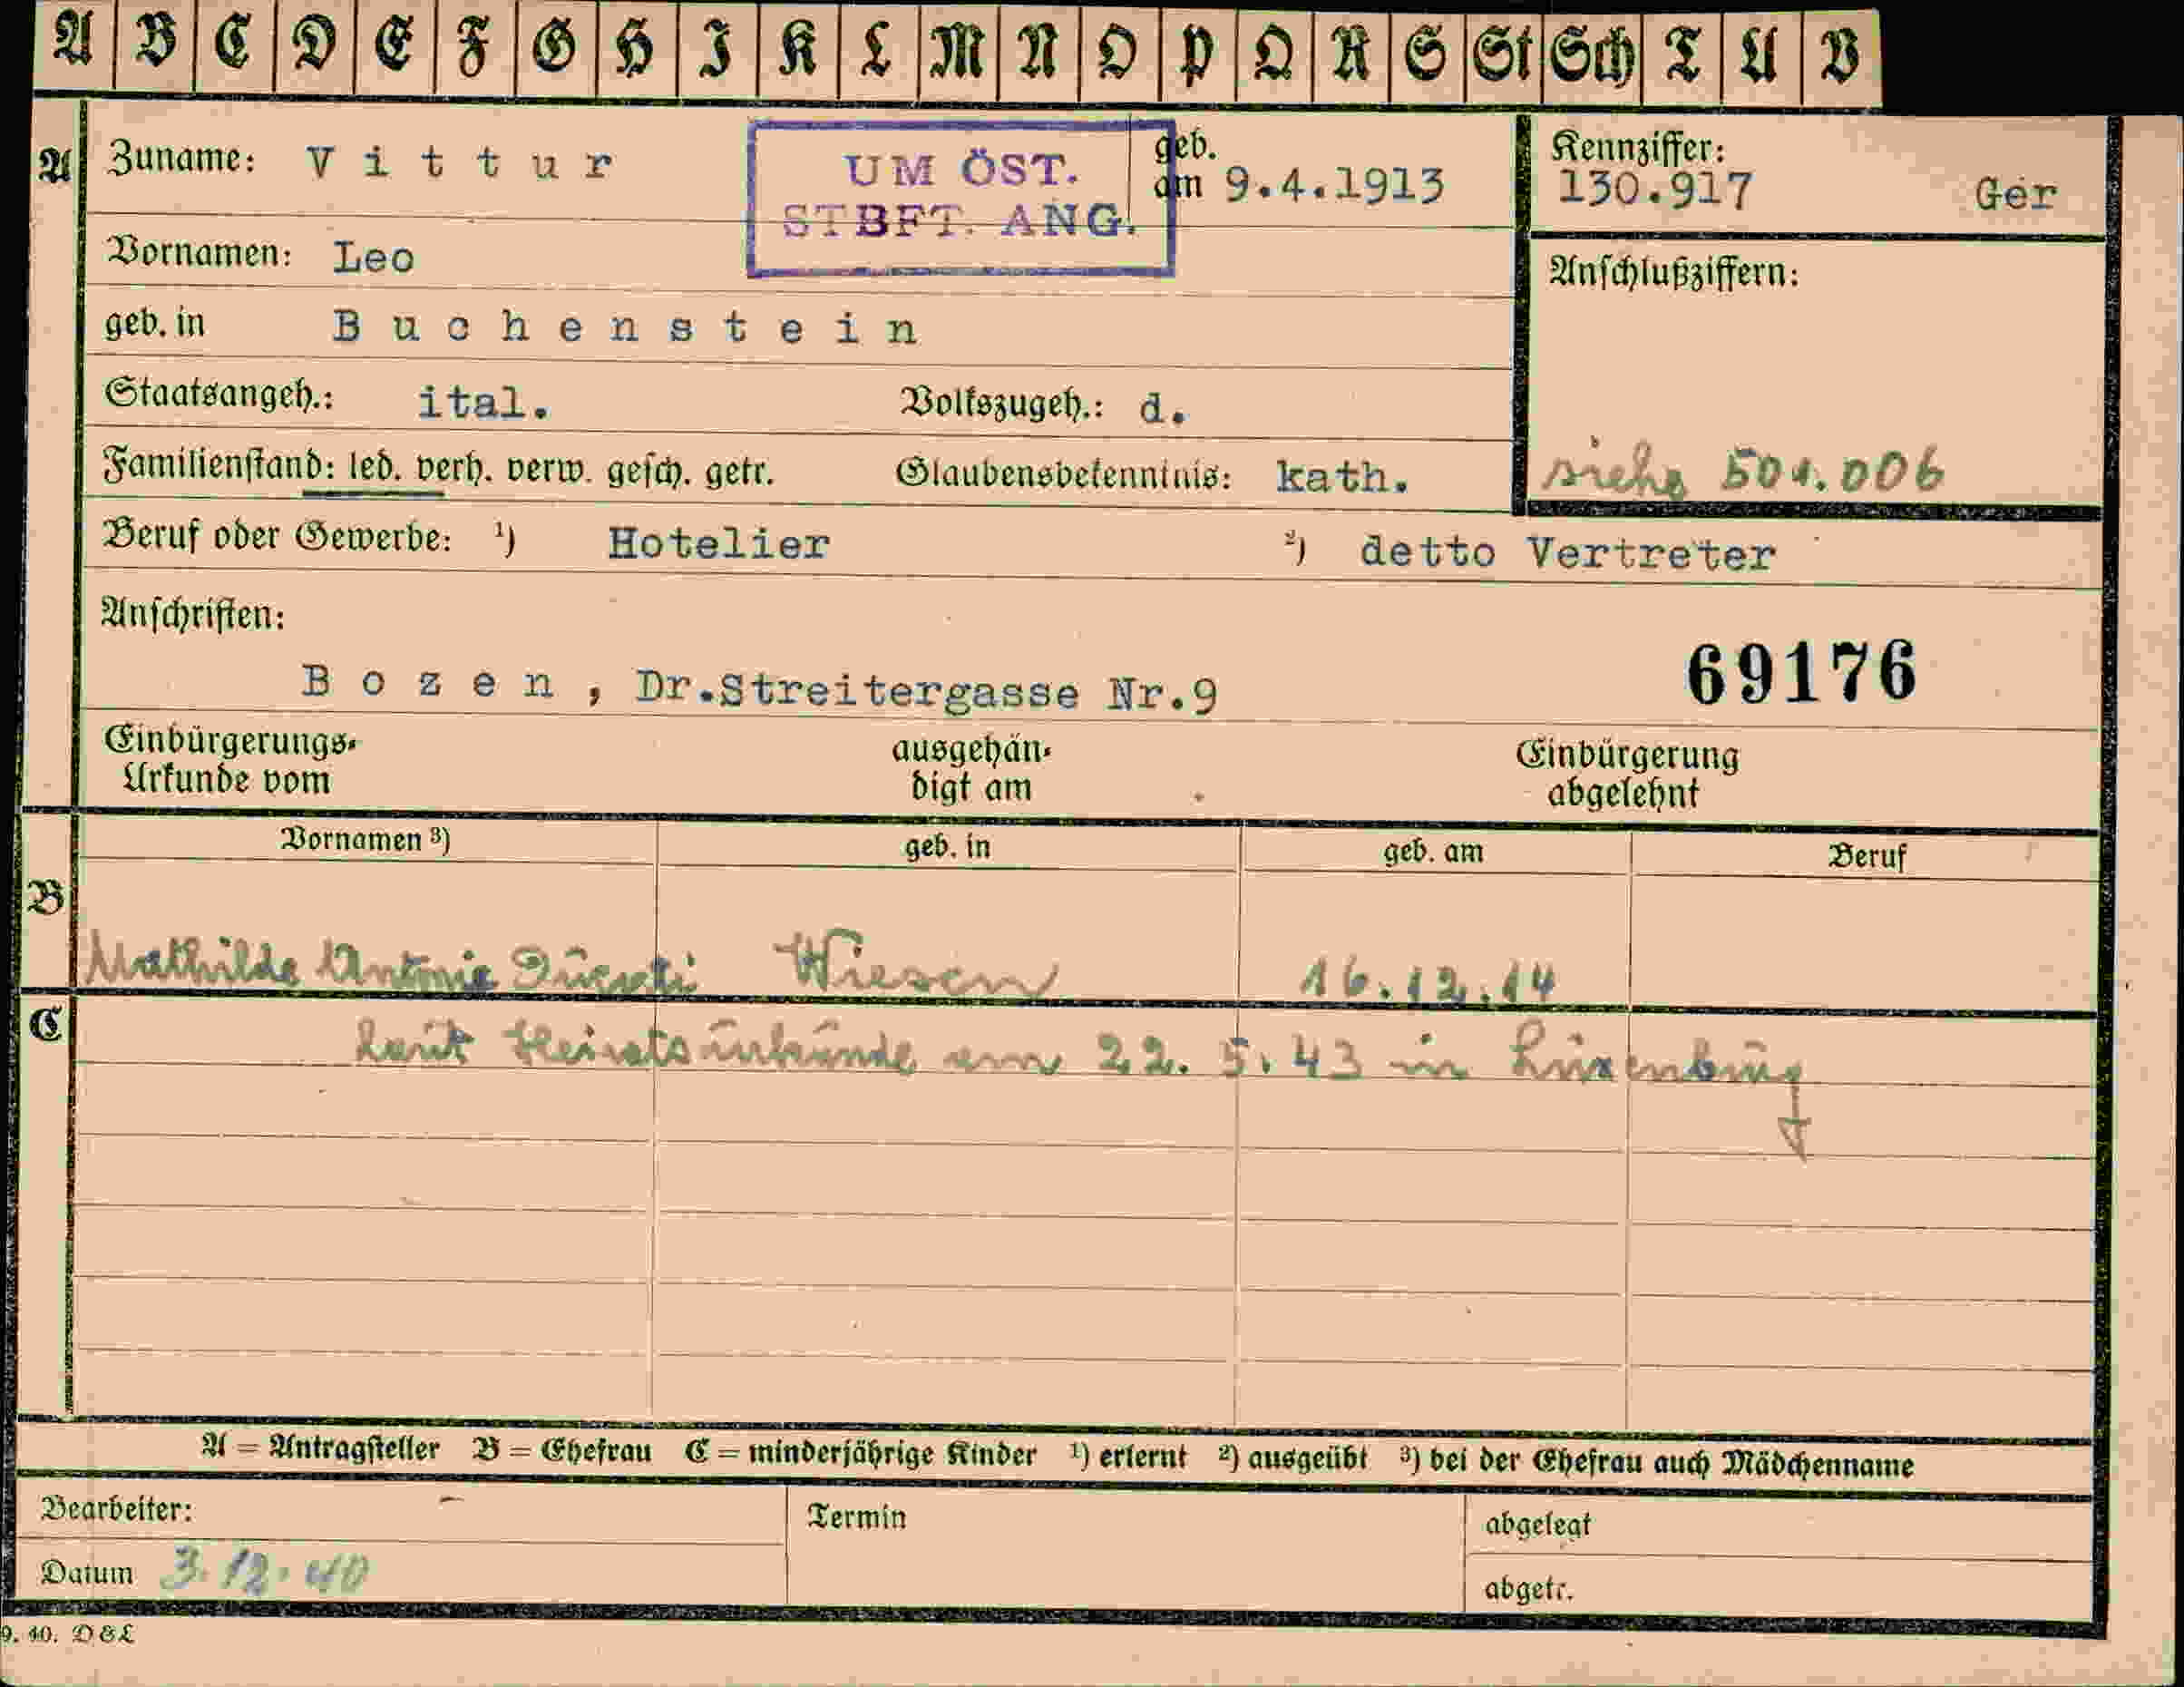 A B C D E F G H I K L M N O P Q R S St Sch T U V
A Zuname: Vittur geb. am 9.4.1913
UM ÖST.
STBFT. ANG.
Kennziffer:
130.917 Ger
Vornamen: Leo
Anschlußziffern:
geb. in Buchenstein
Staatsangeh.: ital. Volkszugeh.: d.
Familienstand: led. verh. verw. gesch. getr. Glaubensbekenntnis: kath.
siehe 501.006
Beruf oder Gewerbe: ¹) Hotelier ²) detto Vertreter
Anschriften:
69176
Bozen, Dr.Streitergasse Nr.9
Einbürgerungs- ausgehän- Einbürgerung
Urkunde vom digt am abgelehnt
Vornamen ³) geb. in geb. am Beruf
B
Mathilde Antonie Wiesen 16.12.14
C
laut Heiratsurkunde am 22. 5. 43 in Luxenburg
A = Antragsteller B = Ehefrau C = minderjährige Kinder ¹) erlernt ²) ausgeübt ³) bei der Ehefrau auch Mädchenname
Bearbeiter: Termin abgelegt
Datum 3.12.40 abgetr.
9. 40. D & L